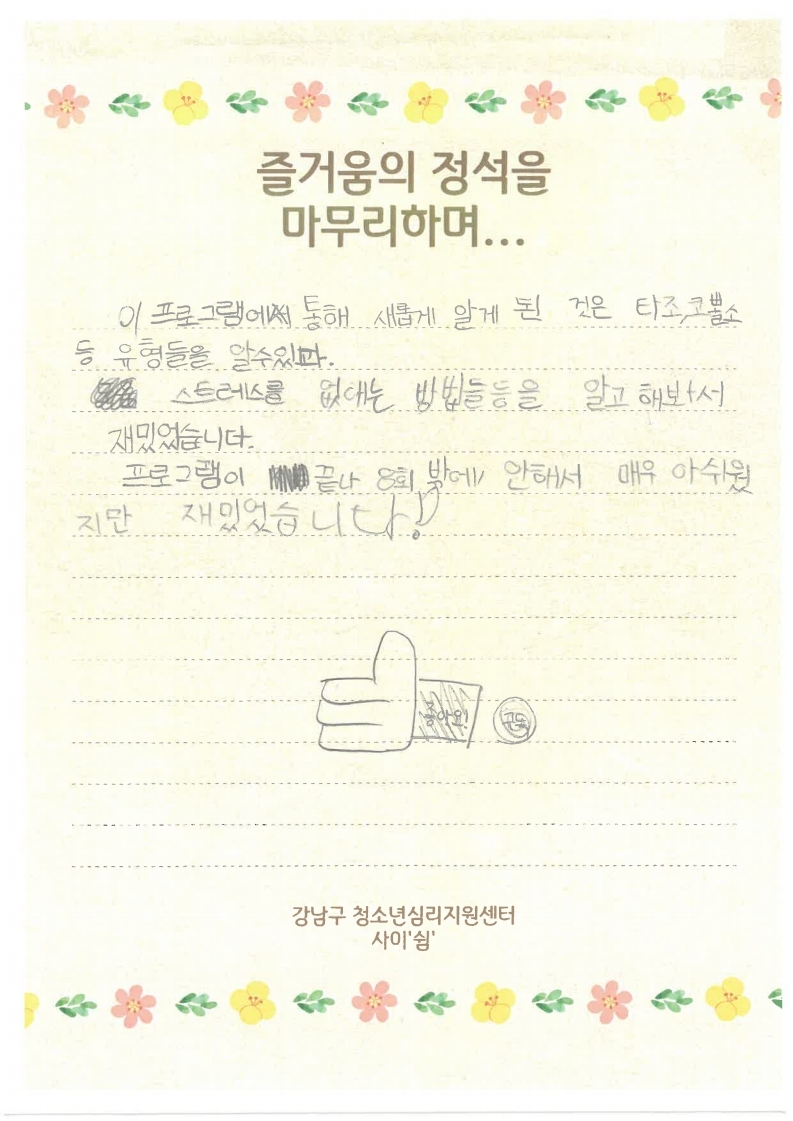 즐거움의 정석을
마무리하며...
이 프로그램에서 통해 새롭게 알게 된 것은 타조,코뿔소
등 유형들을 알수있다.
스트레스를 없애는 방법들등을 알고 해봐서
재밌었습니다.
프로그램이 끝나 8회 밖에 안해서 매우 아쉬웠
지만 재밌었습니다!
좋아요!
강남구 청소년심리지원센터
사이'쉼'